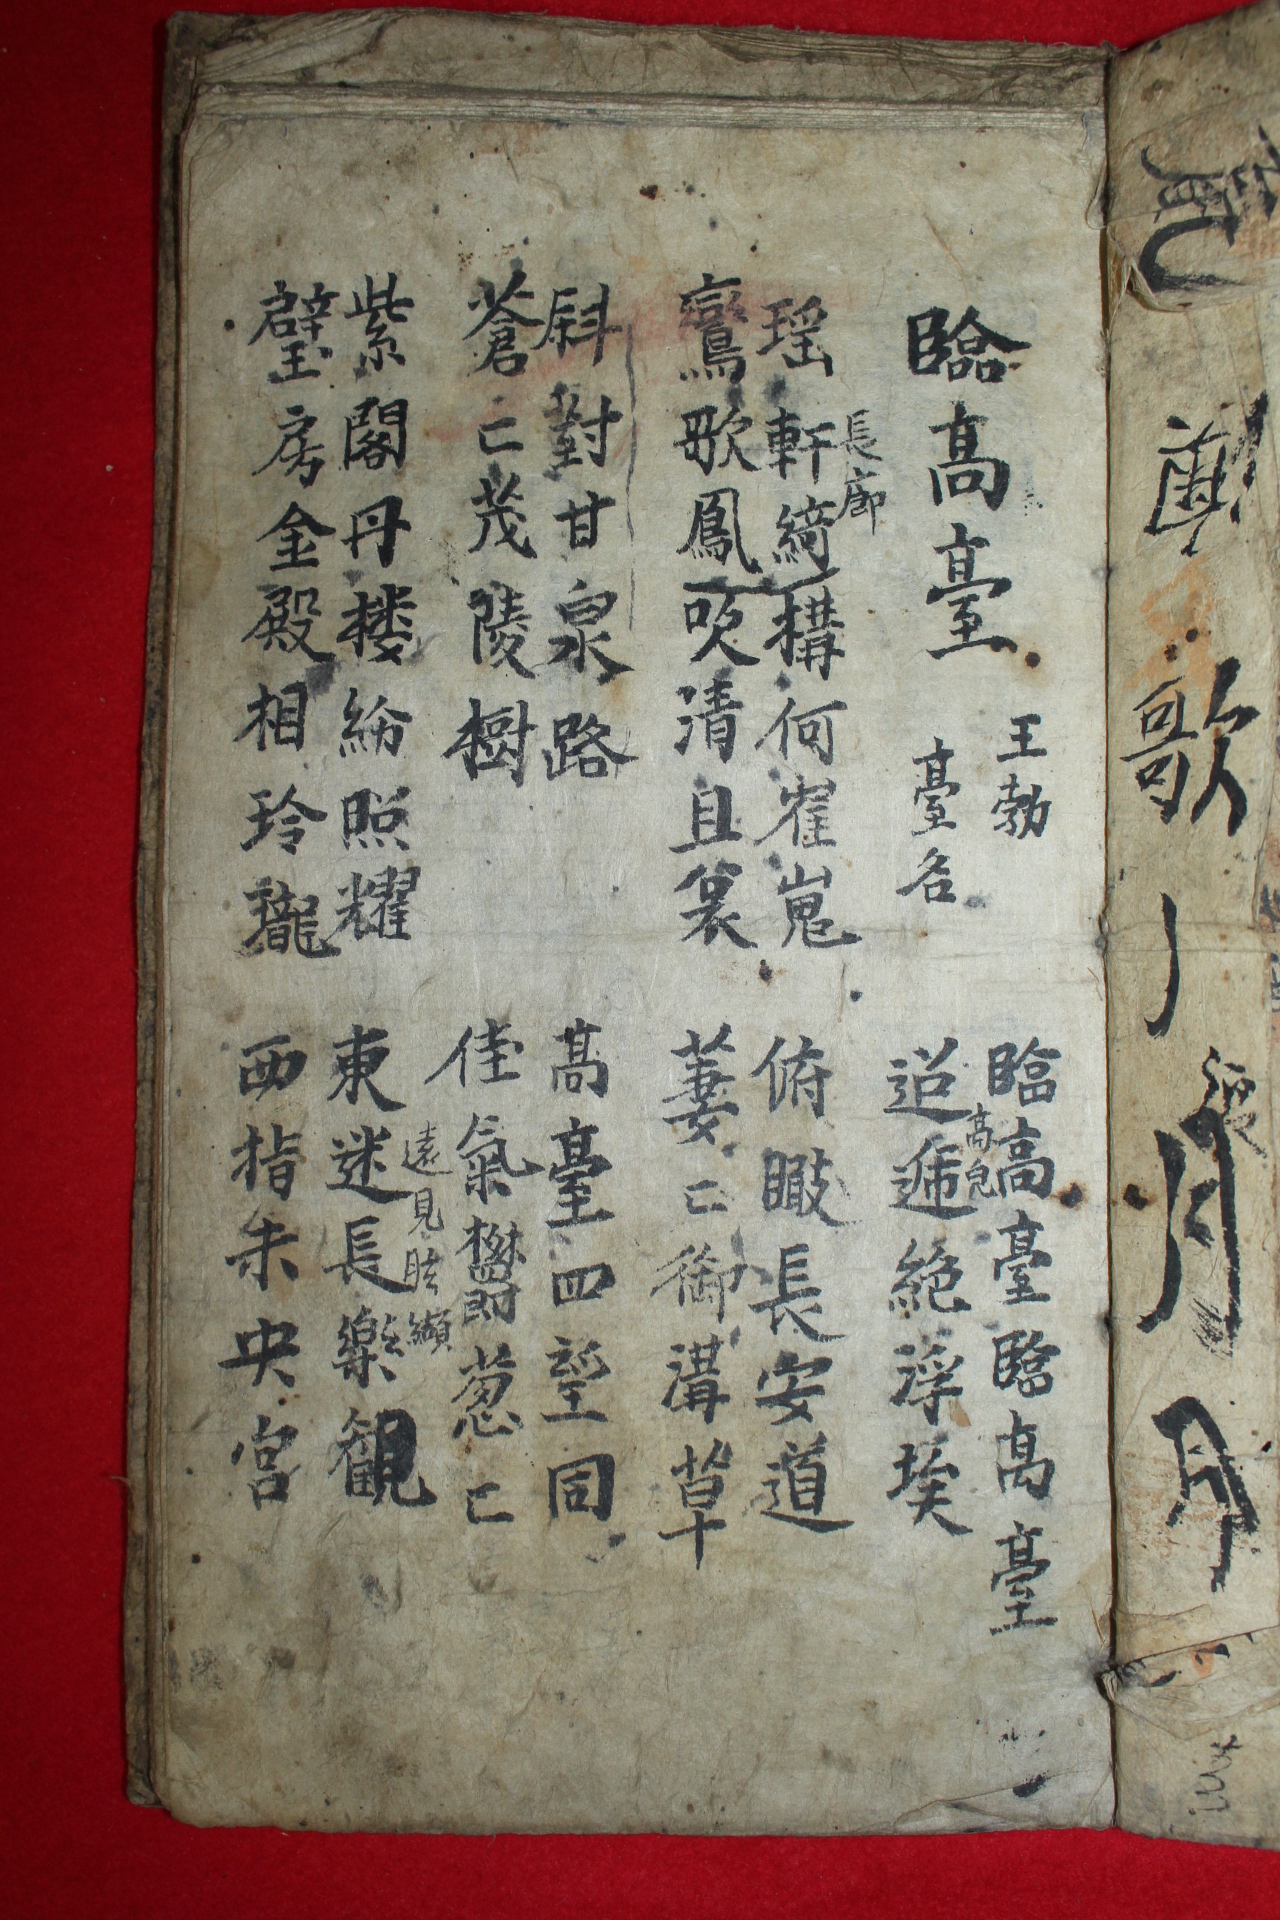 臨高臺
王勃
臺名
臨高臺臨高臺
迢遞絶浮埃
高皃
瑶軒綺構何崔嵬
長廊
鸞歌鳳吹清且哀
俯瞰長安道
萋〻御溝草
斜對甘泉路
蒼〻茂陵樹
高臺四望同
佳氣鬱葱〻
紫閣丹楼紛照耀
璧房金殿相玲瓏
東迷長樂観
遠見眩纈
西指未央宮
歌
月